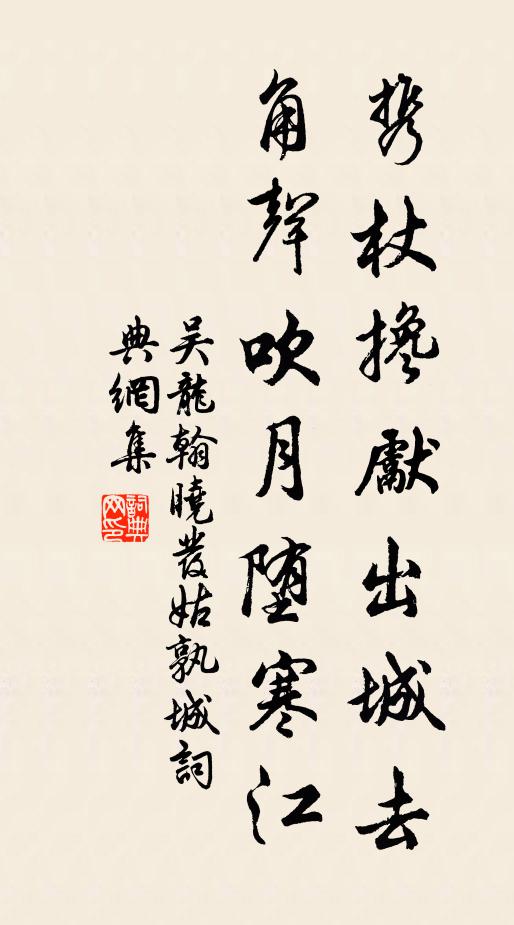 携杖搀獻出城去
角聲吹月堕寒江
吴龍翰曉發姑孰城詞
典網集
詞典网印